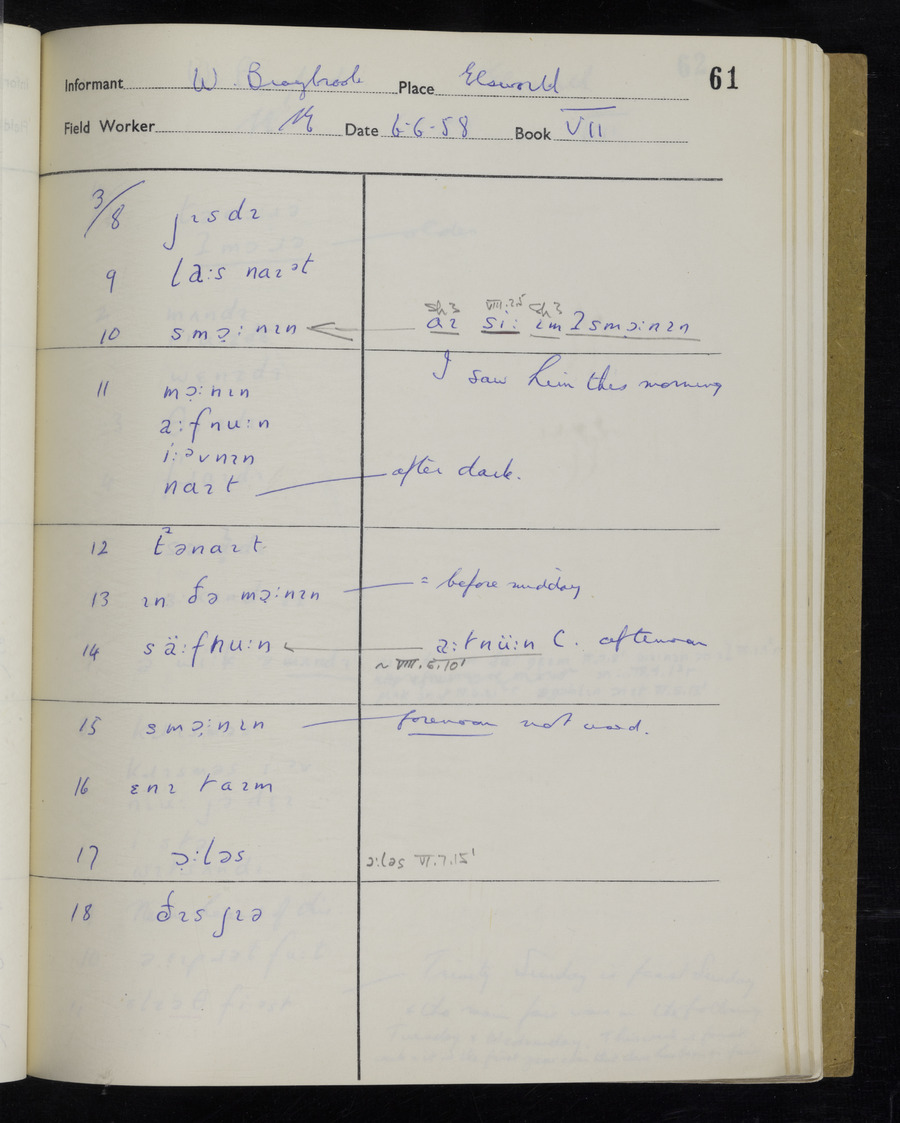 Informant W. Braybrook Place Elsworth 61
Field Worker Date 6-6-58 Book VII
3/8 ȷɪsdɪ
9 la:s naɪət
10 smɔ̣:nɪn aɪ si: ɪm ʔsmɔ:nɪn
Sh3 VIII.2.5 Sh3
I saw him this morning
11 mɔ̣:nɪn
a:fnu:n
i:əvnɪn
naɪt after dark.
12 tənaɪt
13 ɪn ðə mɔ̣:nɪn = before midday
14 sä:fnu:n a:tnü:n C. afternoon
~ VIII.6.10'
15 smɔ̣:nɪn forenoon not used.
16 ɛnɪ taɪm
17 ɔ̣:ləs ɔ:ləs VI.7.15'
18 ðɪs ȷɪə